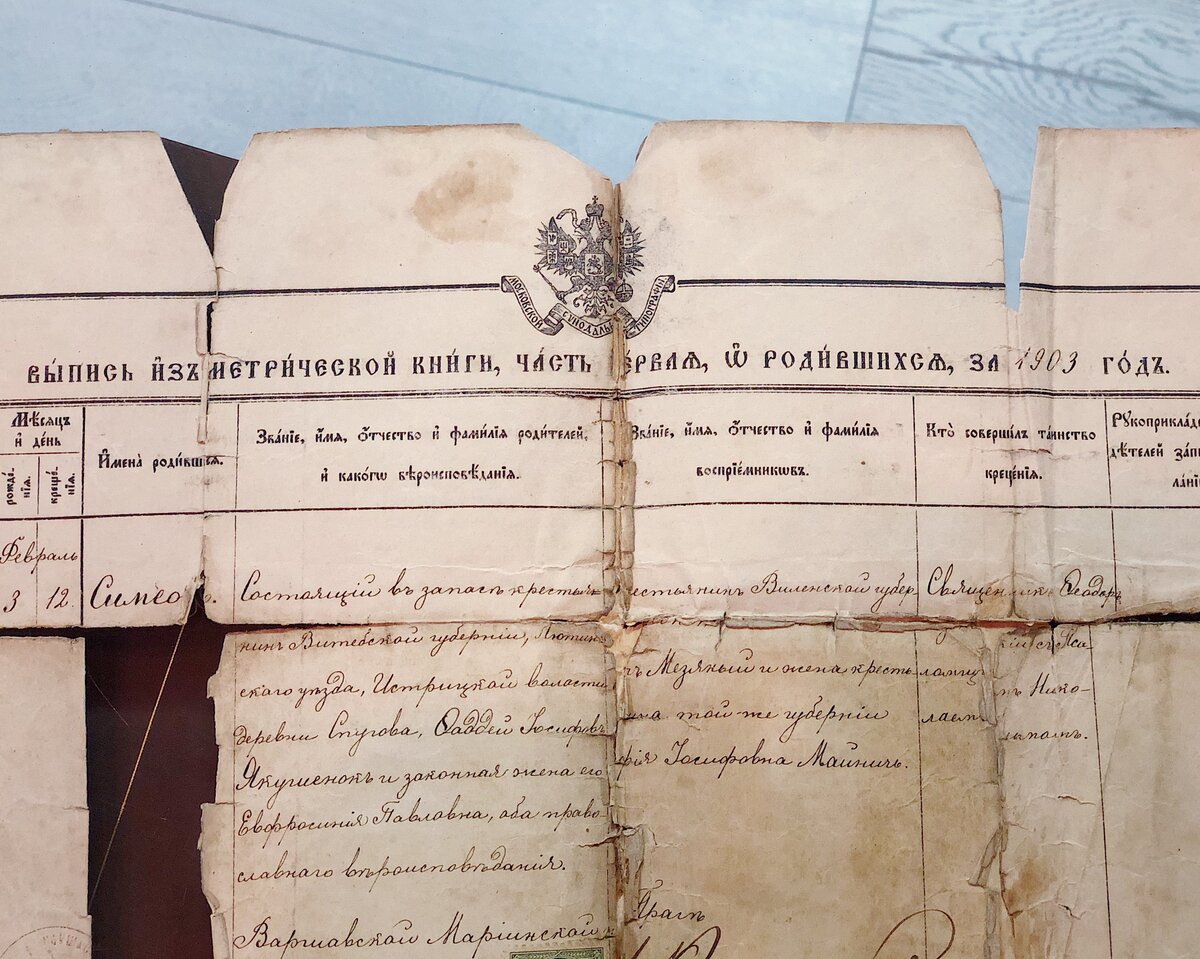 МОСКОВСКОЙ СѴНОДАЛЬ ТИПОГРАФІИ
ВЫ́ПИСЬ И҆ЗЪ МЕТРИ́ЧЕСКОЙ КНИ́ГИ, ЧА́СТЬ Е́РВАѦ, Ѿ РОДИ́ВШИХСѦ, ЗА 1903 ГО́ДЪ.
Мѣ́сѧцъ
и҆ де́нь
рожде́
нїѧ.
креще́
нїѧ.
И҆мена̀ роди́вшихсѧ.
Зва́нїе, и҆́мѧ, ѻ҆́тчество и҆ фами́лїѧ роди́телей,
и҆ како́гѡ вѣроисповѣ́данїѧ.
Зва́нїе, и҆́мѧ, ѻ҆́тчество и҆ фами́лїѧ
воспрїе́мникѡвъ.
Кто̀ соверши́лъ та́инство
креще́нїѧ.
Рꙋкоприкла́де
дѣ́телей за́пи
ла́нїю
Февраль
3 12
Симеонъ.
Состоящій въ запасѣ крестья
нинъ Витебской губерніи, Люцин
скаго уѣзда, Истрицкой волости
деревни Спугова, Ѳаддей Іосифовъ
Якушенокъ и законная жена его
Евфросинія Павловна, оба право-
славнаго вѣроисповѣданія.
естьянинъ Виленской губер
чъ Мезяный и жена кресть-
той же губерніи
Іосифовна Майничъ.
Священникъ Ѳеодоръ
кій съ Пса
ломщ мъ Нико-
лаем
Варшавской Маріинской
Прагѣ